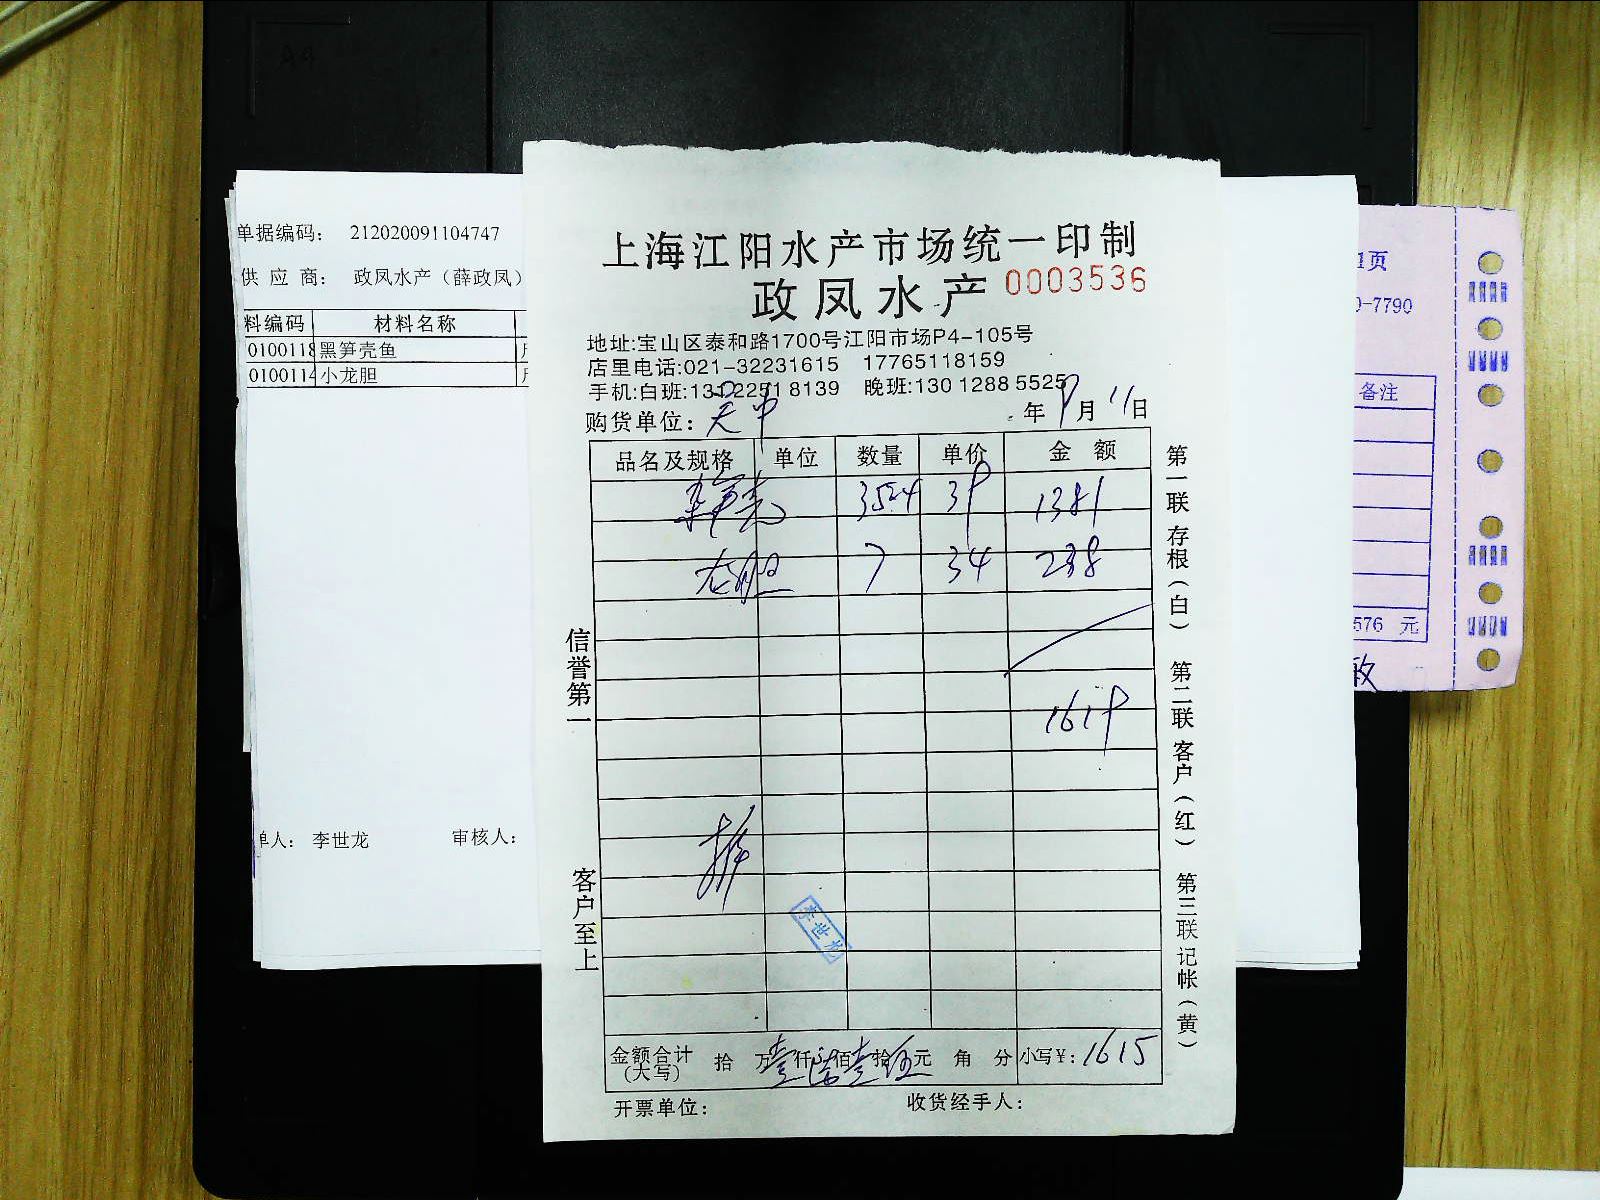 单据编码： 212020091104747
供 应 商： 政凤水产（薛政凤）
料编码 材料名称
0100118 黑笋壳鱼
0100114 小龙胆
单人： 李世龙 审核人：
上海江阳水产市场统一印制
政凤水产 0003536
地址:宝山区泰和路1700号江阳市场P4-105号
店里电话:021-32231615 17765118159
手机:白班:131 2251 8139 晚班:130 1288 5525
购货单位: 吴中 年 9 月 11 日
品名及规格 单位 数量 单价 金 额
笋壳 354 39 1381
龙胆 7 34 238
1619
李世龙
金额合计(大写) 拾 万壹仟陆佰壹拾伍元 角 分 小写¥: 1615
开票单位: 收货经手人:
信誉第一
客户至上
第一联 存根(白) 第二联 客户(红) 第三联 记帐(黄)
1页
0-7790
备注
576 元